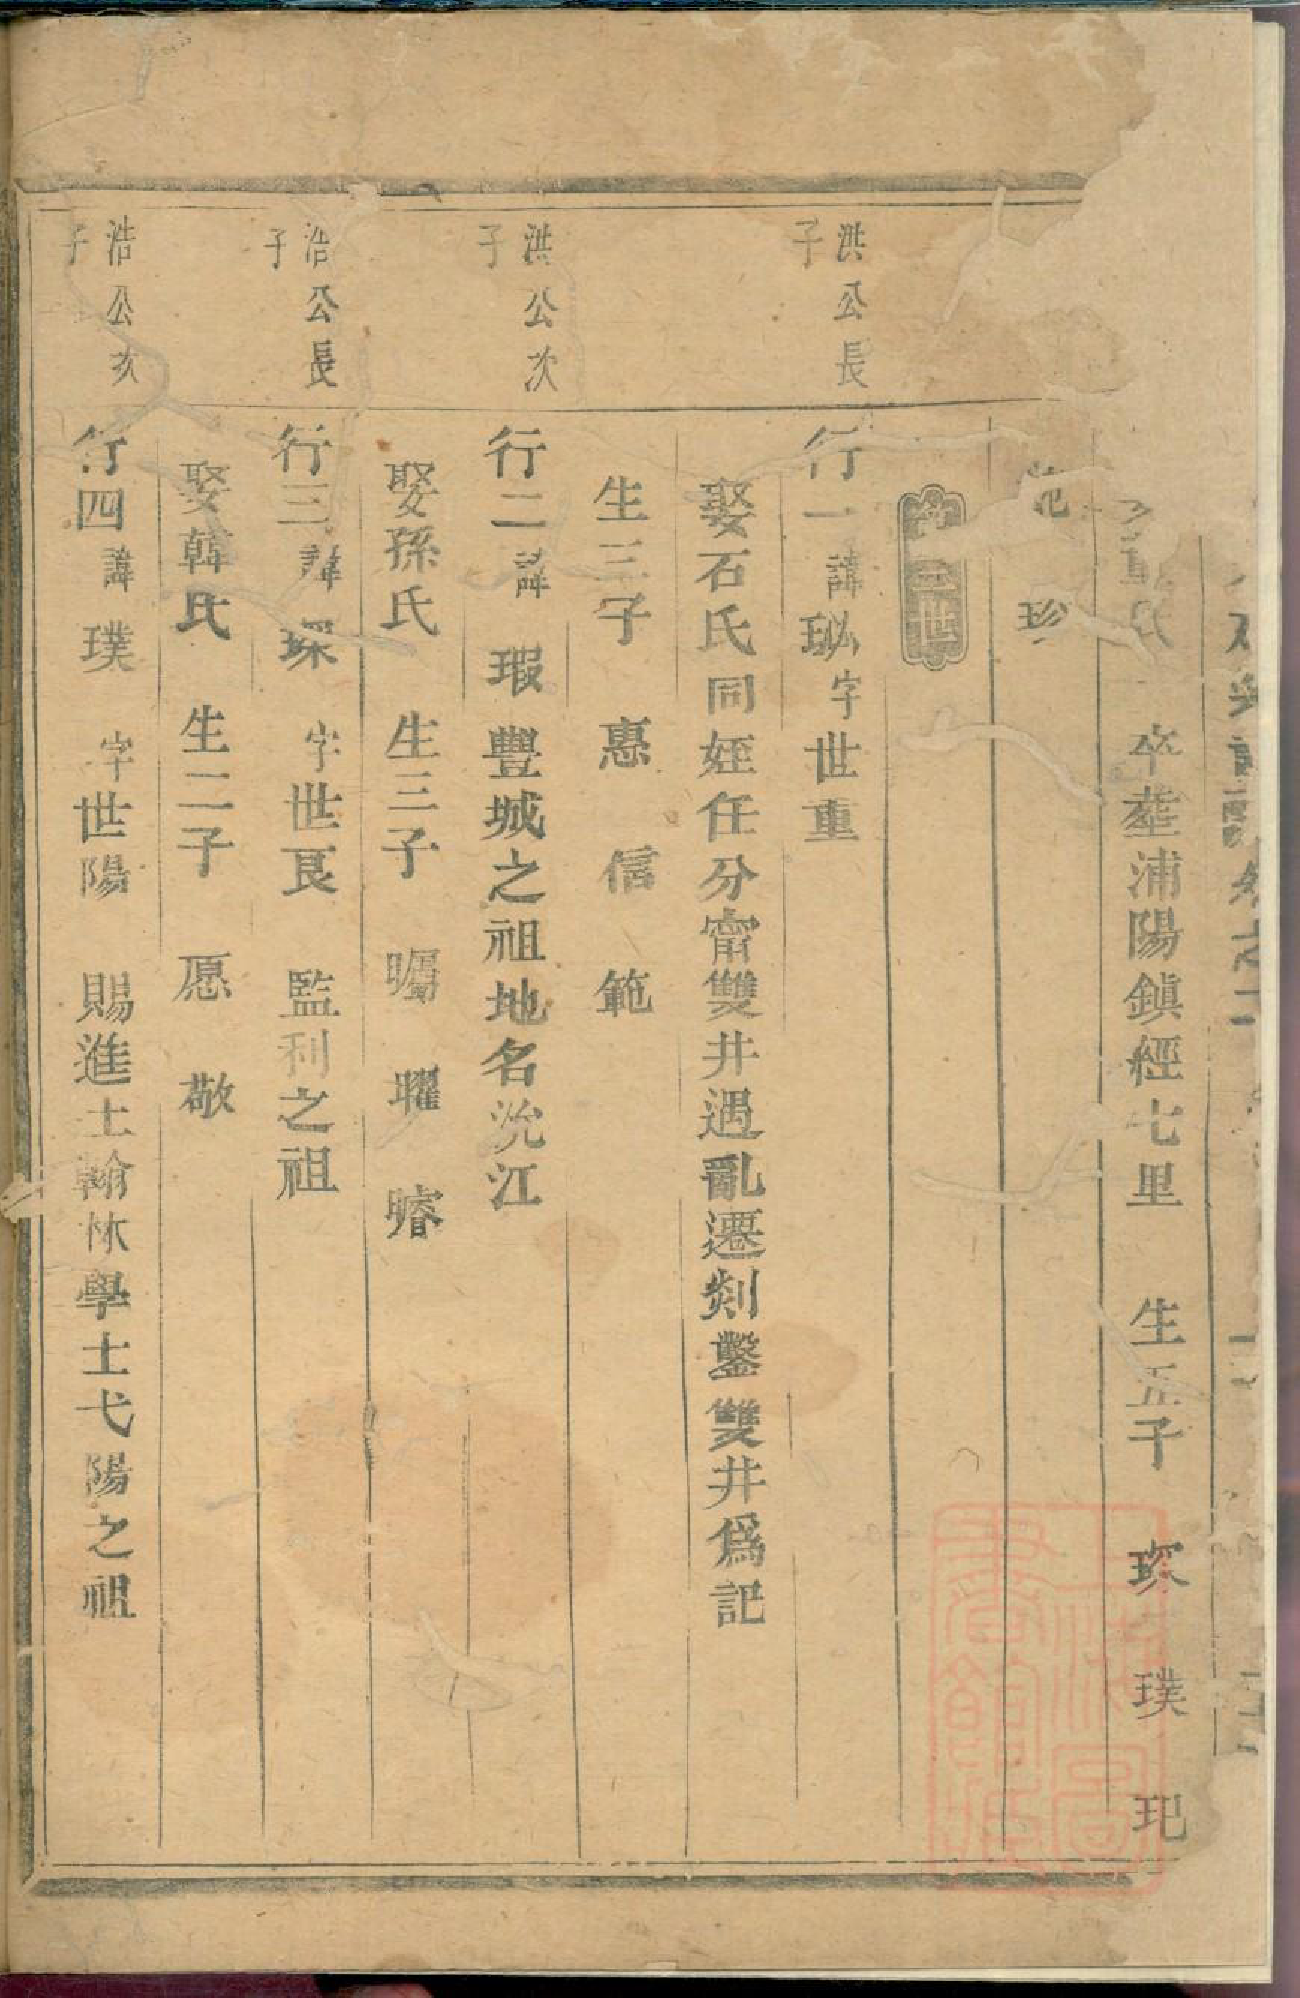 氏 卒塟浦陽鎮經七里 生五子 琛 璞 玘
珍
三世
洪公長子
行一諱珌字世重
娶石氏同姪任分甯雙井遇亂遷剡鑿雙井爲記
生三子 惠 信 範
洪公次子
行二諱瑕豐城之祖地名沇江
娶孫氏 生三子 曯 曜 㬜
浩公長子
行三諱琛字世艮 監利之祖
娶韓氏 生二子 愿 敬
浩公次子
行四諱璞 字世陽 賜進士翰林學士弋陽之祖